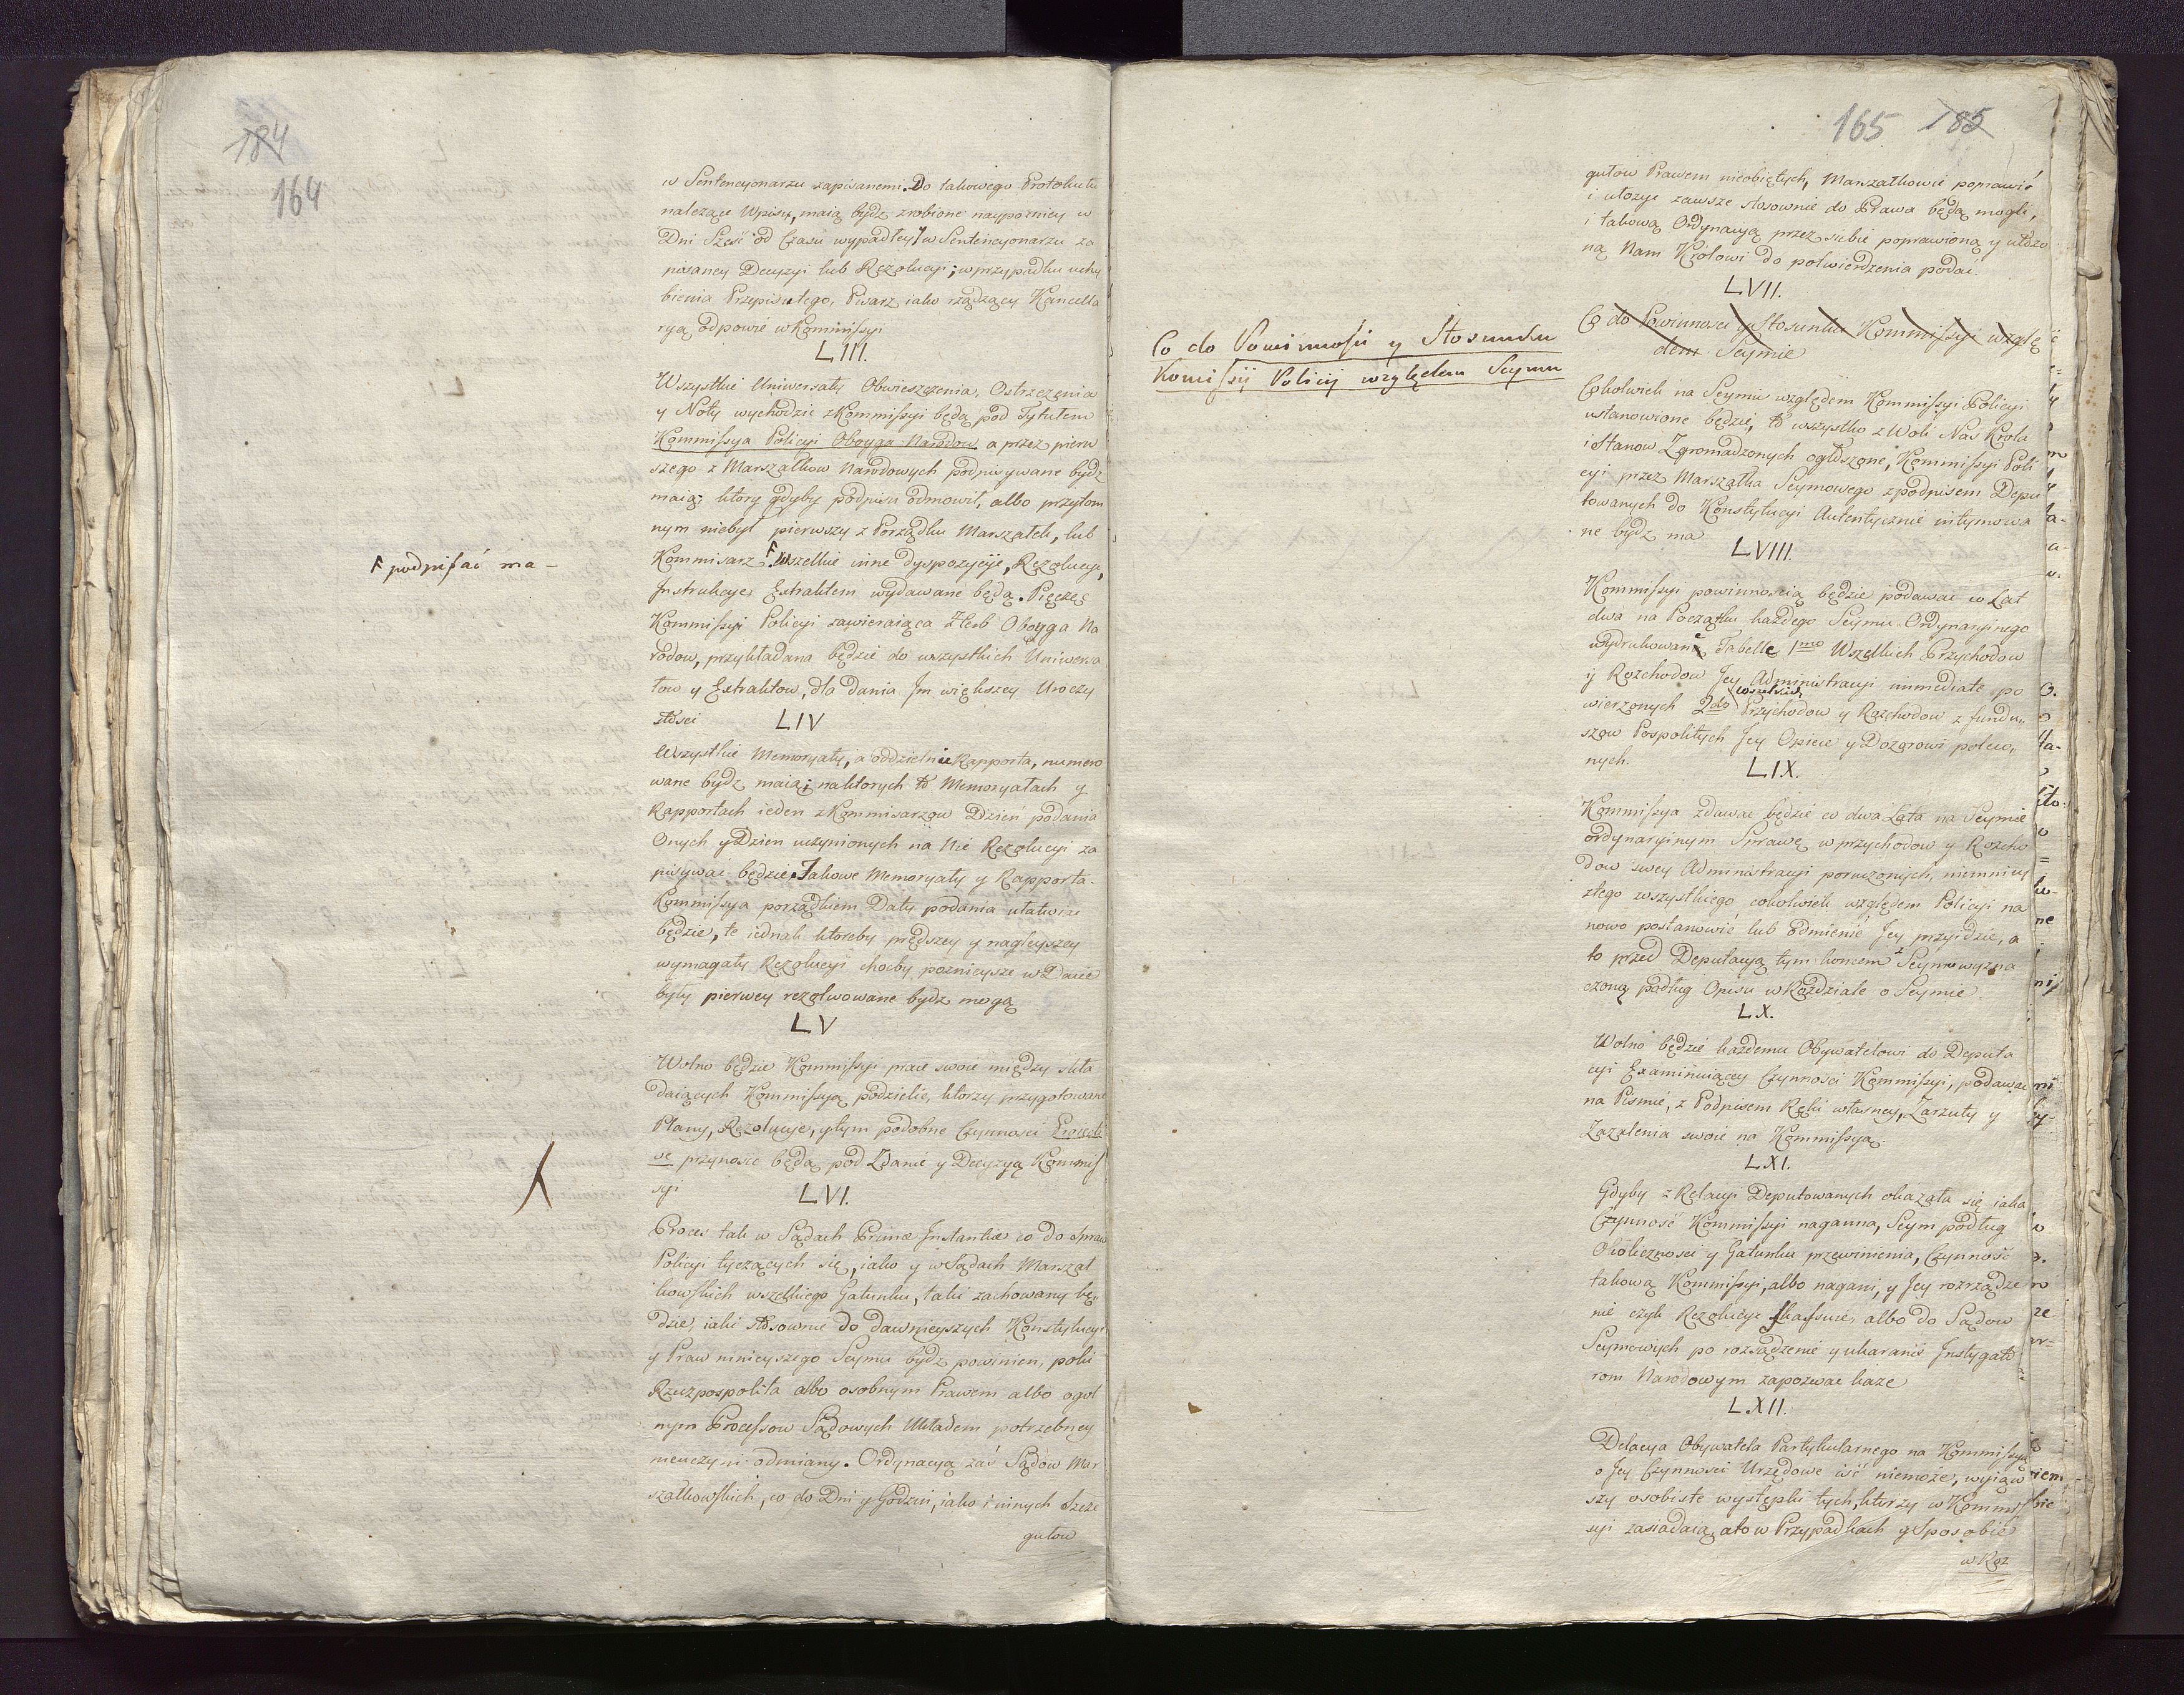 184
164
w Sentencyonarzu zapisanemi. Do takowego Protokułu
należące Wpisy, maią bydz zrobione naypozniey w
Dni Sześć od Czasu wypadłey w Sentencyonarzu za
pisaney Decyzyi lub Rezolucyi; w przypadku uchy
bienia Przepisu tego, Pisarz iako rządzący Kancella
ryą odpowie w Kommissyi
LIII.
Wszystkie Uniwersały Obwieszczenia, Ostrzezenia
y Noty wychodzic z Kommissyi będą pod Tytułem
Kommissya Policyi Oboyga Narodow a przez pierw
szego z Marszałkow Narodowych podpisywane bydz
maią; ktory gdyby podpisu odmowił, albo przytom
nym niebył pierwszy z Porządku Marszałek, lub
Kommisarz Wszelkie inne dyspozycyje, Rezolucye,
podpisać ma –
Instrukcye Extraktem wydawane będą. Pieczęć
Kommissyi Policyi zawieraiąca Herb Oboyga Na
rodow, przykładana będzie do wszystkich Uniwersa
łow y Extraktow, dla dania Im większey Uroczy
stosci
LIV
Wszystkie Memoryały, a oddzielnie Rapporta, numero
wane bydz maią; na ktorych to Memoryałach y
Rapportach ieden z Kommisarzow Dzień podania
Onych y Dzien uczynionych na Nie Rezolucyi za
pisywać będzie. Takowe Memoryały y Rapporta.
Kommissya porządkiem Daty podania ułatwiac
będzie, te iednak ktoreby prędszey y nagleyszey
wymagały Rezolucyi choćby poznieysze w Dacie
były pierwey rezolwowane bydz mogą
LV
Wolno będzie Kommissyi prace swoie między skła
daiących Kommissyą podzielic, ktorzy przygotowane
Plany, Rezolucye, y tym podobne Czynnosci
przynosic będą pod Zdanie y Decyzyą Kommis
syi
LVI.
Proces tak w Sądach Primæ Instantiæ co do Spraw
Policyi tyczących się, iako y w Sądach Marszał
kowskich wszelkiego Gatunku, taki zachowany bę
dzie, iaki stosownie do dawnieyszych Konstytucyi
y Praw ninieyszego Seymu bydz powinien, poki
Rzeczpospolita albo osobnym Prawem albo ogol
nym Processow Sądowych Układem potrzebney
nieuczyni odmiany. Ordynacyą zaś Sądów Mar
szałkowskich, co do Dni y Godzin, iako i innych Szcze
gułow
165 185
gułow Prawem nieobiętych, Marszałkowie poprawić
i ułożyc zawsze stosownie do Prawa będą mogli,
i takową Ordynacyą przez siebie poprawioną y ułożo
ną Nam Krolowi do potwierdzenia podac.
LVII.
Co do Powinnosci y Stosunku Kommissyi wzglę
dem Seymie
Co do Powinnosci y Stosunku
Komissyi Policyi względem Seymu
Cokolwiek na Seymie względem Kommissyi Policyi
ustanowione będzie, to wszystko z Woli Nas Krola
i Stanow Zgromadzonych ogłoszone, Kommissyi Poli
cyi przez Marszałka Seymowego z podpisem Depu
towanych do Konstytucyi Autentycznie intymowa
ne bydz ma
LVIII.
Kommissyi powinnoscią będzie podawac co Lat
dwa na Początku każdego Seymu Ordynaryinego
wydrukowane Tabelle 1mo Wszelkich Przychodow
y Rozchodow Jey Administracyi immediate po
wierzonych 2do wszelkich Przychodow y Rozchodow z fundu,,
szow Pospolitych Jey Opiece y Dozorowi poleco,,
nych.
LIX.
Kommissya zdawac będzie co dwa Lata na Seymie
ordynaryinym Sprawę w przychodow y Rozcho
dow swey Administracyi poruczonych, niemniey
z tego wszystkiego cokolwiek względem Policyi na
nowo postanowić lub odmienić Jey przyidzie, a
to przed Deputacyą tym koncem z Seymu wyzna
czoną podług Opisu w Rozdziale o Seymie.
LX.
Wolno będzie każdemu Obywatelowi do Deputa
cyi Examinuiącey Czynnosci Kommissyi, podawac
na Pismie, z Podpisem Ręki własney, Zarzuty y
Zażalenia swoie na Kommissyą.
LXI.
Gdyby z Relacyi Deputowanych okazała się iaka
Czynność Kommissyi naganna, Seym podług
Okolicznosci y Gatunku przewinienia, Czynność
takową Kommissyi, albo nagani, y Jey rozrządze
nie czyli Rezolucye skassuie, albo do Sądow
Seymowych po rozsądzenie y ukaranie Instygato
rom Narodowym zapozwac każe
LXII.
Delacya Obywatela Partykularnego na Kommissyą
o Jey Czynnosci Urzędowe iść niemoże, wyiąw
szy osobiste występki tych, ktorzy w Kommis
syi zasiadaią, a to w Przypadkach y Sposobie
w Roz